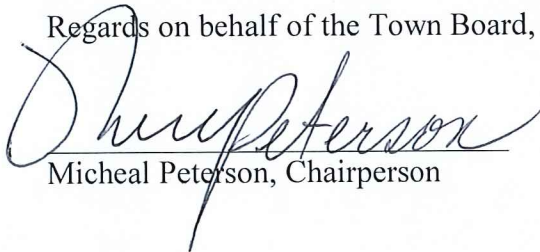 Regards on behalf of the Town Board,
Peterson
Micheal Peterson, Chairperson